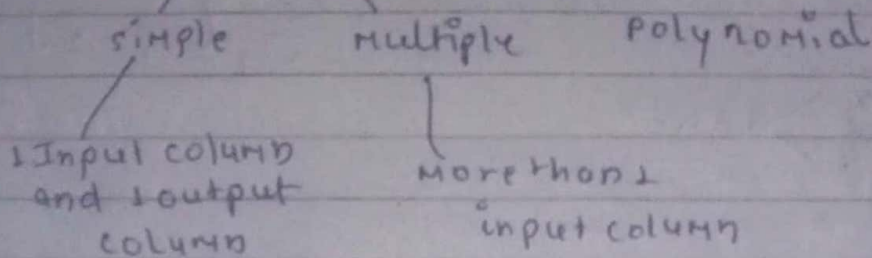 simple Multiple Polynomial
1 Input column
and 1 output
column
More than 1
input column